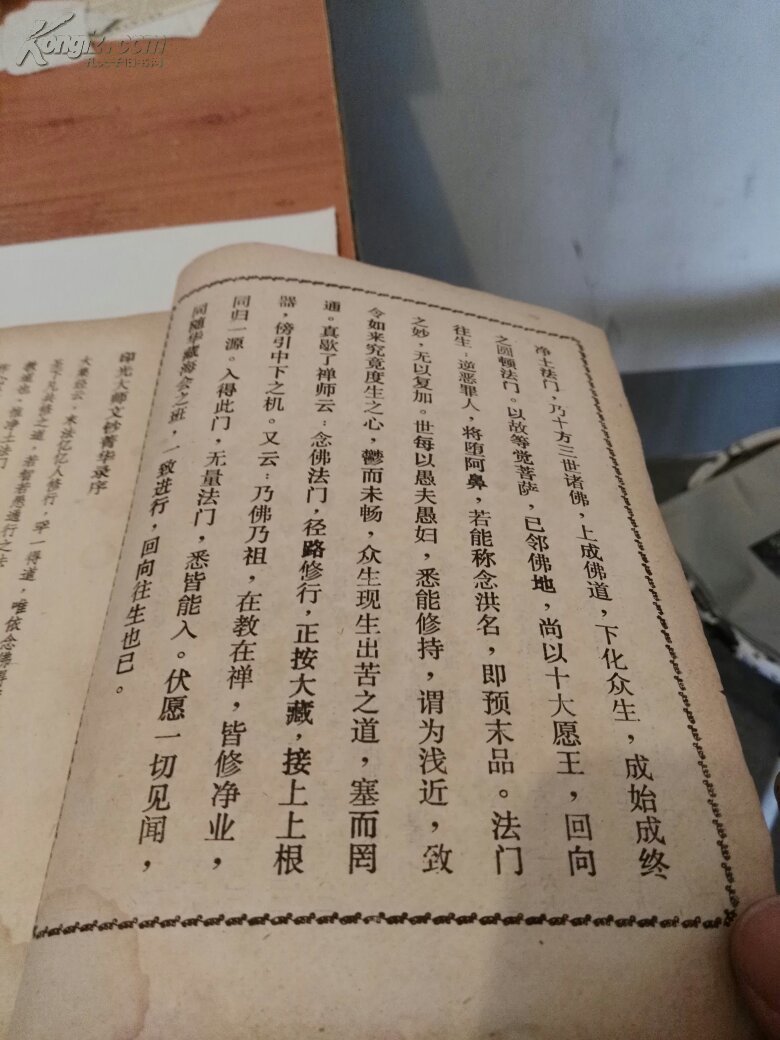 Kongfz.com
净土法门，乃十方三世诸佛，上成佛道，下化众生，成始成终
之圆顿法门。以故等觉菩萨，已邻佛地，尚以十大愿王，回向
往生；逆恶罪人，将堕阿鼻，若能称念洪名，即预末品。法门
之妙，无以复加。世每以愚夫愚妇，悉能修持，谓为浅近，致
令如来究竟度生之心，鬱而未畅，众生现生出苦之道，塞而罔
通。真歇了禅师云：念佛法门，径路修行，正按大藏，接上上根
器，傍引中下之机。又云：乃佛乃祖，在教在禅，皆修净业，
同归一源。入得此门，无量法门，悉皆能入。伏愿一切见闻，
同随华藏海会之班，一致进行，回向往生也已。
印光大师文钞菁华录序
大集经云，末法亿亿人修行，罕一得道，唯依念佛得
圣下凡共修之道，若智若愚通行之法